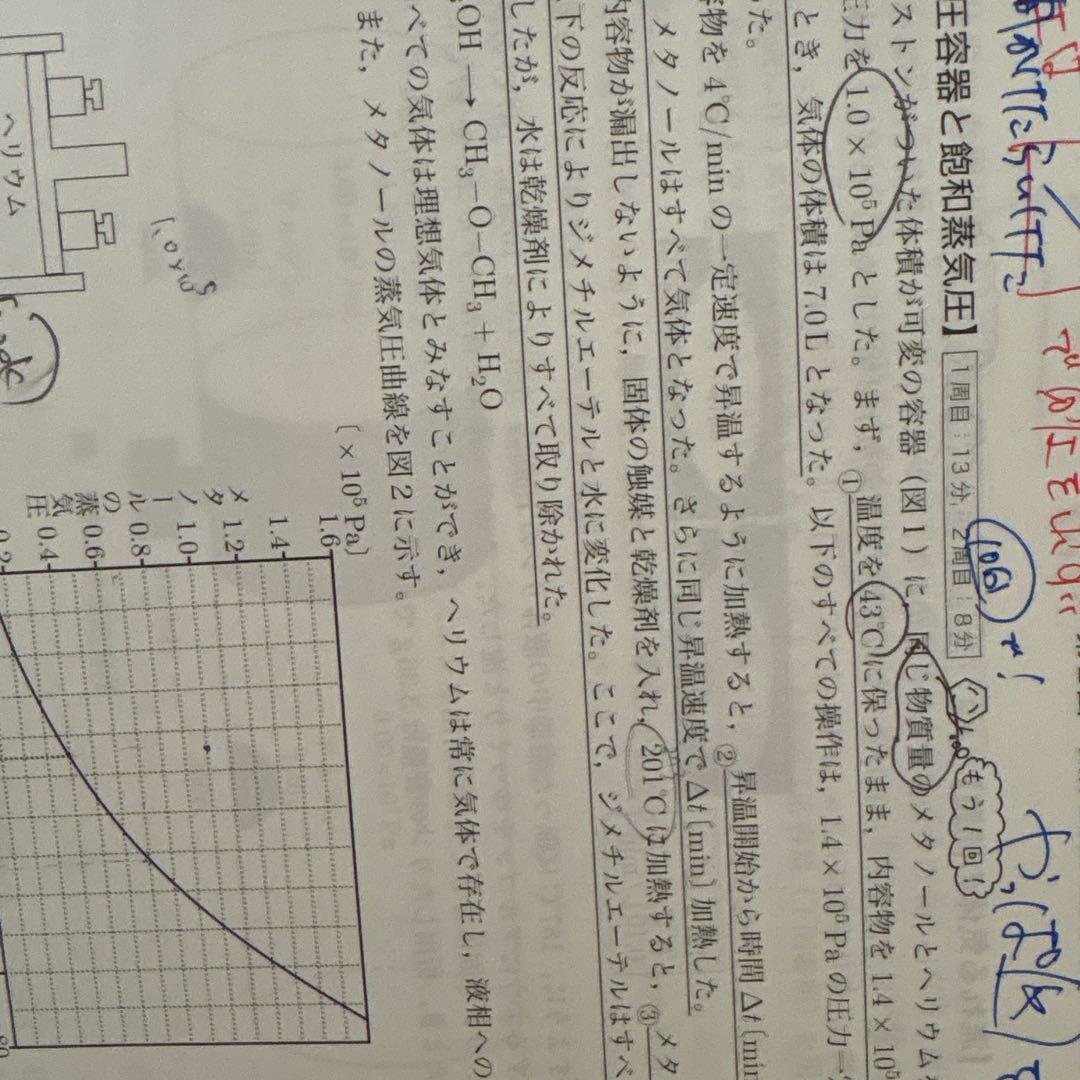 圧容器と飽和蒸気圧】 1周目:13分,2周目:8分
もう1回!
ストンがついた体積が可変の容器(図1)に,同じ物質量のメタノールとヘリウムを
圧力を1.0×10⁵Paとした。まず,①温度を43℃に保ったまま,内容物を1.4×10⁵
とき,気体の体積は7.0Lとなった。以下のすべての操作は,1.4×10⁵Paの圧力一定
った。
容物を4℃/minの一定速度で昇温するように加熱すると,②昇温開始から時間Δt〔min
メタノールはすべて気体となった。さらに同じ昇温速度でΔt〔min〕加熱した。
内容物が漏出しないように,固体の触媒と乾燥剤を入れ,201℃は加熱すると,③メタ
下の反応によりジメチルエーテルと水に変化した。ここで,ジメチルエーテルはすべ
したが,水は乾燥剤によりすべて取り除かれた。
OH → CH₃-O-CH₃ + H₂O
べての気体は理想気体とみなすことができ,ヘリウムは常に気体で存在し,液相への
また,メタノールの蒸気圧曲線を図2に示す。
ヘリウム
〔×10⁵Pa〕
メタノールの蒸気圧
1.6
1.4
1.2
1.0
0.8
0.6
0.4
0.2
80